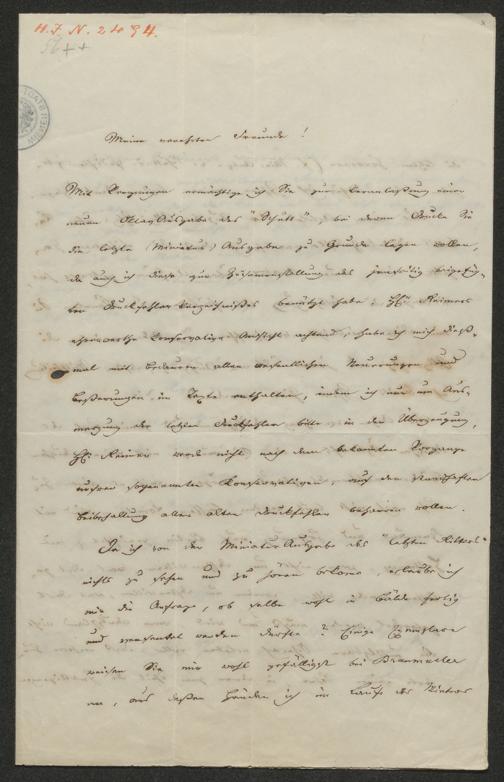 H. I. N. 2494.
56++
Meine verehrten Freunde!
Mit Vergnügen ermächtige ich Sie zur Veranlassung einer
neuen Ausgabe des "Schutt", bei deren Drucke Sie
die letzte Miniatur-Ausgabe zu Grunde legen wollen,
da auch ich diese zur Zusammenstellung des beigefüg-
ten Druckfehlerverzeichnisses benützt habe. H. Reimers
ehrenwerthe conservative Ansicht achtend, habe ich mich dieß-
mal mit Bedauern aller wesentlichen Neuerungen und
Beßerungen im Texte enthalten, indem ich nur um Aus-
merzung der letzten Druckfehler bitte in der Überzeugung,
H. Reimer werde nicht nach dem bekannten Vorgange
unserer sogenannten Konservativen, auf der
Beibehaltung aller alten Druckfehler beharren wollen.
Da ich von der Miniatur-Ausgabe des "letzten Ritters"
nichts zu sehen und zu hören bekam, erlaube ich
mir die Anfrage, ob selbe wohl in Bälde fertig
und versendet werden dürfte? Einige Exemplare
weisen Sie mir wohl gefälligst bei Braumüller
an, aus deßen Händen ich im Laufe des Winters